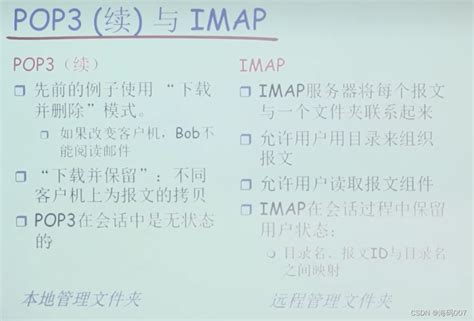 POP3 (续) 与 IMAP
POP3（续）
先前的例子使用 “下载
并删除”模式。
如果改变客户机，Bob不
能阅读邮件
“下载并保留”：不同
客户机上为报文的拷贝
POP3在会话中是无状态
的
本地管理文件夹
IMAP
IMAP服务器将每个报文
与一个文件夹联系起来
允许用户用目录来组织
报文
允许用户读取报文组件
IMAP在会话过程中保留
用户状态：
目录名，报文ID与目录名
之间映射
远程管理文件夹
CSDN @海码007